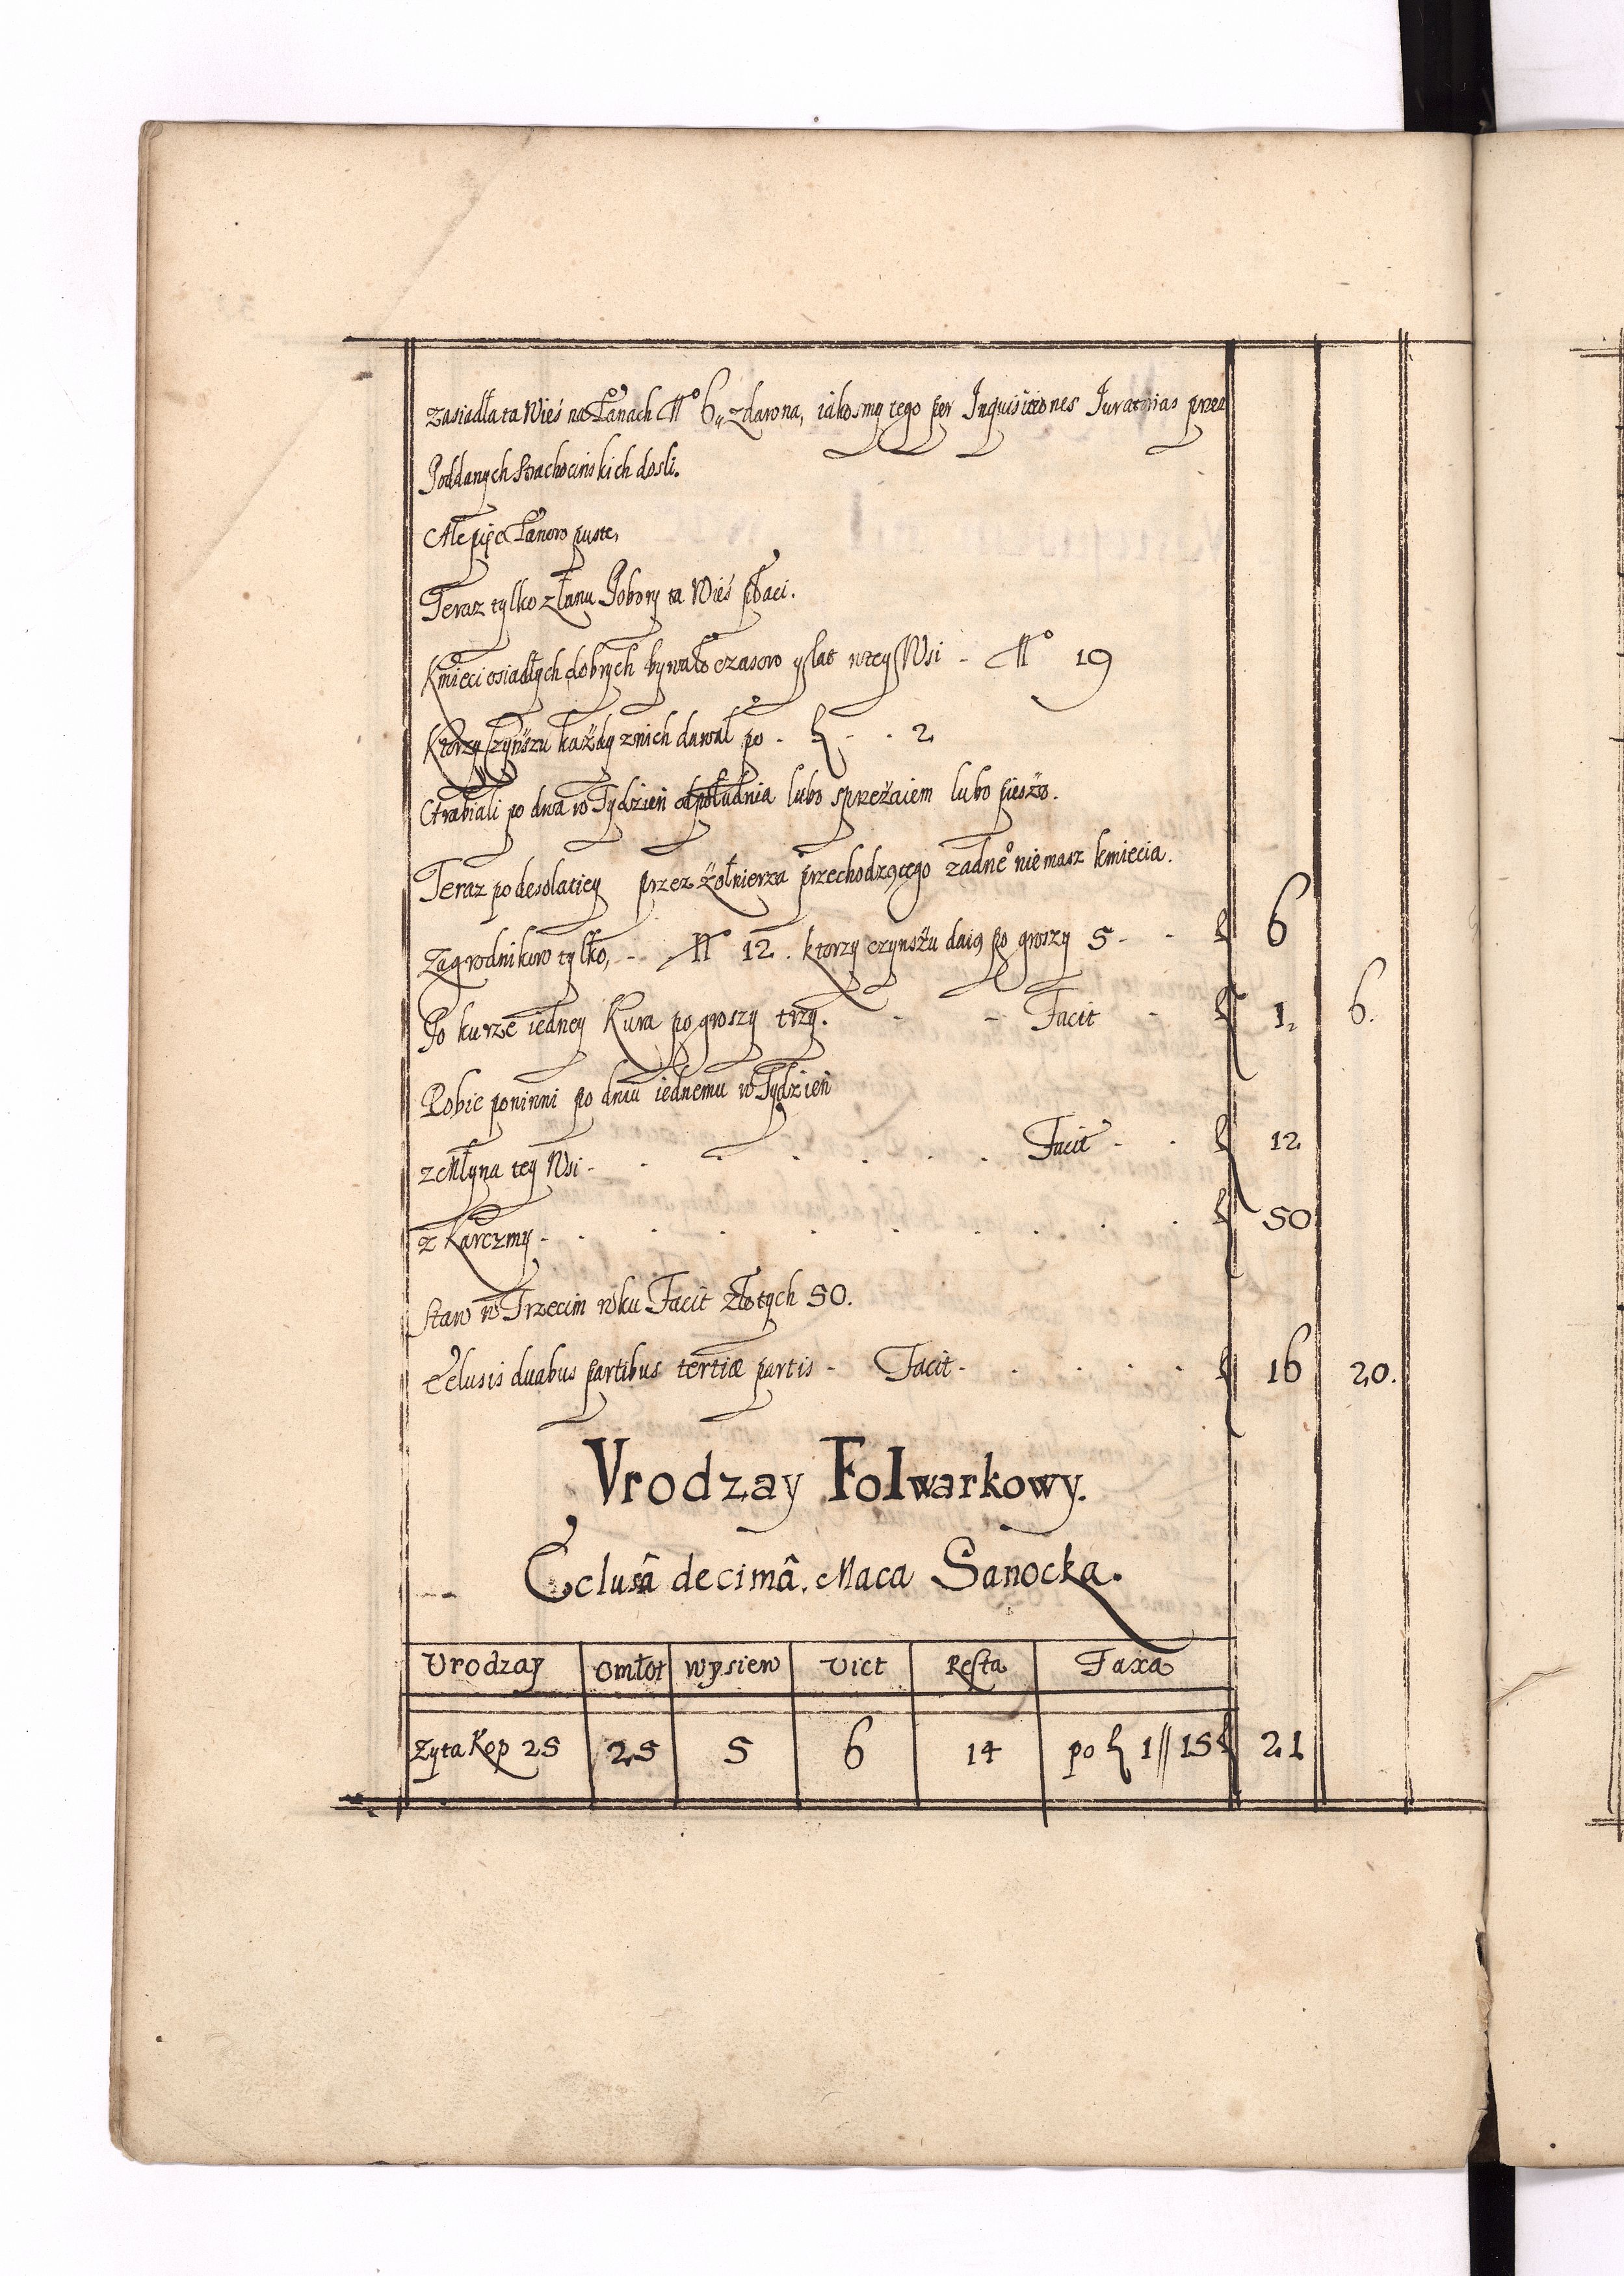 Zasiadła ta Wieś na Łanach No 6 zdawna, iakosmy tego per Inquisitiones Iuratorias przez
Poddanych Strachocińskich dosli.
Ale pięć Łanow puste,
Teraz tylko z Łanu Pobory ta Wieś płaci.
Kmieci osiadłych dobrych bywało czasow y lat w tey Wsi - No 19
Ktorzy Czynszu każdy z nich dawał po - ƶ - . 2
A rabiali po dwa w Tydzień od południa lubo sprzężaiem lubo pieszo.
Teraz po desolatiey przez żołnierza przechodzącego zadneo niemasz kmiecia.
Zagrodnikow tylko, - No 12. ktorzy czynszu daią po groszy 5 - - ƶ 6
Po kurze iedney Kura po groszy trzy. - - Facit - ƶ 1. 6.
Robic powinni po dniu iednemu w Tydzień
z Młyna tey Wsi - . . . . . Facit - . ƶ 12
z Karczmy - . . . . . . . . ƶ 50
Staw w Trzecim roku Facit Złotych 50.
Exclusis duabus partibus tertiæ partis - Facit - . . . . ƶ 16 20.
Vrodzay Folwarkowy.
Exclusâ decimâ. Maca Sanocka.
Vrodzay Omłot Wysiew Vict Resta Taxa
Zyta Kop 25 25 5 6 14 po ƶ 1 // 15 ƶ 21